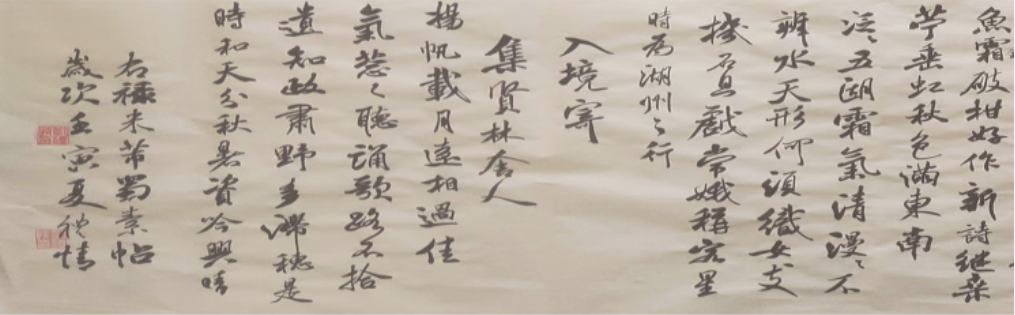 魚霜破柑好作新詩继桑
苧垂虹秋色滿東南
泛〻五湖霜氣清漫〻不
辨水天形何須織女支
機石且戲常娥稱客星
時為湖州之行
入境寄
集賢林舍人
揚帆載月遠相過佳
氣蔥〻聽誦歌路不拾
遺知政肅野多滯穗是
時和天分秋暑資吟興晴
右禄米芾蜀素帖
歲次壬寅夏